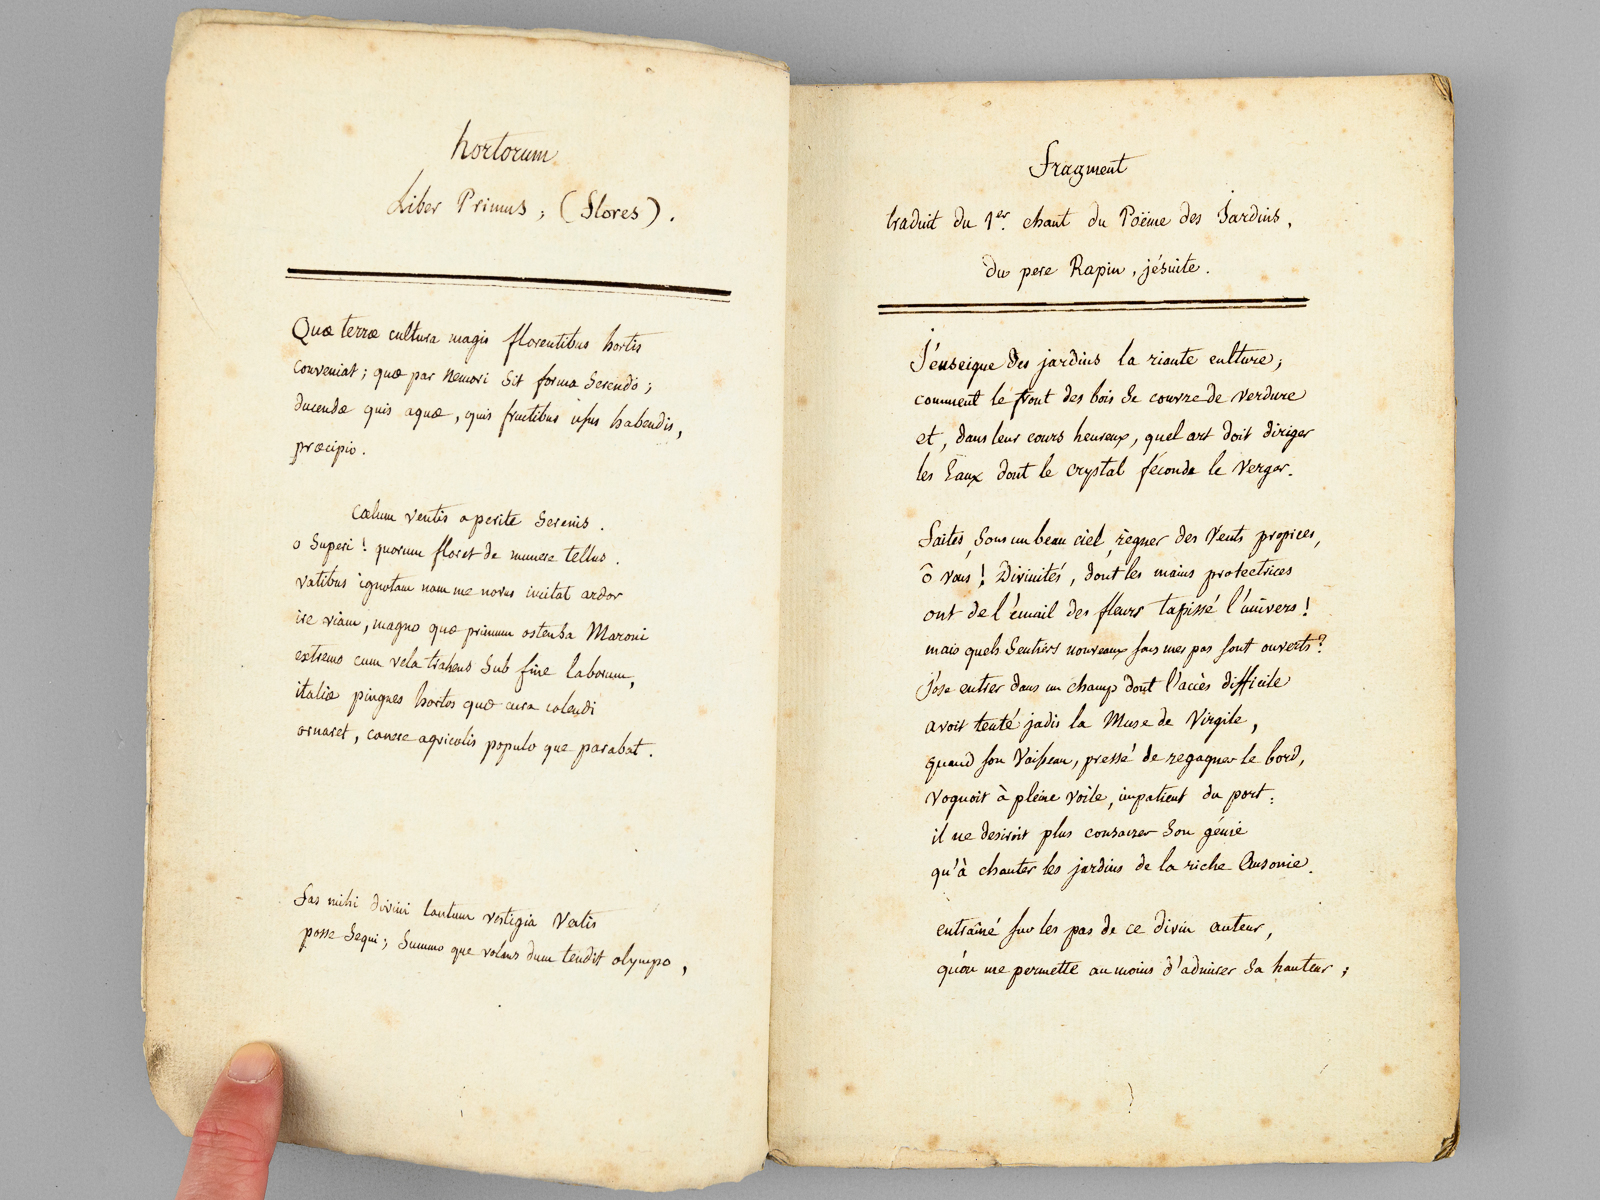 hortorum
Liber Primus, (flores).
Quæ terræ cultura magis florentibus hortis
conveniat; quæ par nemori sit forma serendo;
ducendæ quis aquæ, quis fructibus usus habendis,
præcipio.
Cœlum ventis aperite serenis.
o Superi! quorum floret de munere tellus.
vatibus ignotam nam me novus incitat ardor
ire viam, magno quæ primum ostensa Maroni
extremo cum vela trahens sub fine laborum,
italiæ pingues hortos quæ cura colendi
ornaret, canere agricolis populo que parabat.
Fas mihi divini tantum vestigia Vatis
posse sequi; summo que volans dum tendit olympo,
Fragment
traduit du 1er. chant du Poëme des Jardins,
du pere Rapin, jésuite.
J'enseigne des jardins la riante culture;
comment le front des bois se couvre de verdure
et, dans leur cours heureux, quel art doit diriger
les Eaux dont le crystal féconde le verger.
Faites, sous un beau ciel, régner des Vents propices,
ô vous! Divinités, dont les mains protectrices
ont de l'émail des fleurs tapissé l'univers!
mais quels sentiers nouveaux sous mes pas sont ouverts?
j'ose entrer dans un champ dont l'accès difficile
avoit tenté jadis la Muse de Virgile,
quand son Vaisseau, pressé de regagner le bord,
voguoit à pleine voile, impatient du port:
il ne desiroit plus consacrer son génie
qu'à chanter les jardins de la riche Ausonie.
entraîné sur les pas de ce divin auteur,
qu'on me permette au moins d'admirer sa hauteur;